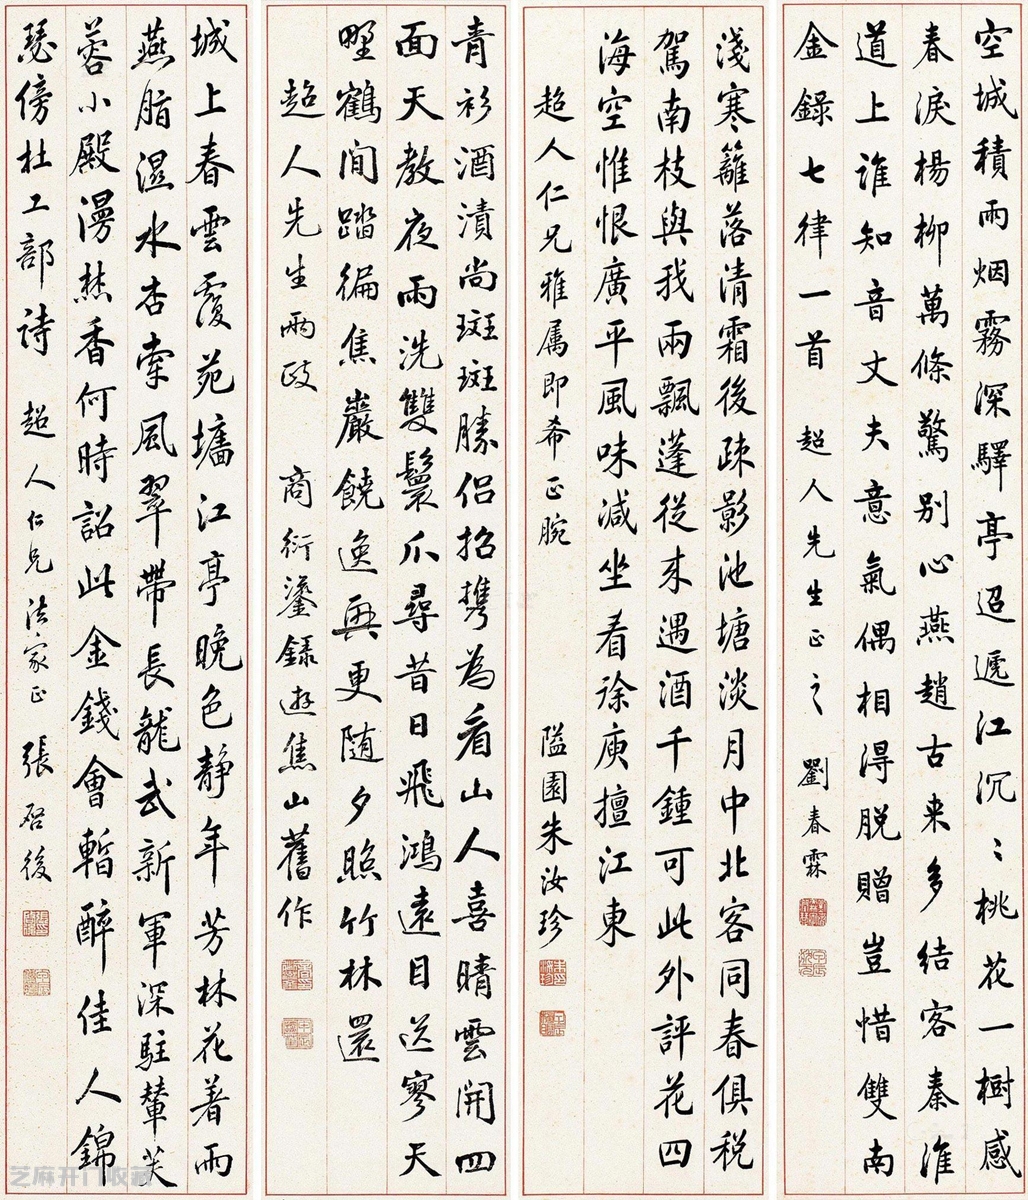 空城積雨烟霧深驛亭迢遞江沉〻桃花一樹感
春淚楊柳萬條驚別心燕趙古来多結客秦淮
道上誰知音丈夫意氣偶相得脱贈豈惜雙南
金錄七律一首 超人先生正之 劉春霖
淺寒籬落清霜後疎影池塘淡月中北客同春俱税
駕南枝與我兩飄蓬從来遇酒千鍾可此外評花四
海空惟恨廣平風味減坐看徐庾擅江東
超人仁兄雅属即希正腕 隘園朱汝珍
青衫酒漬尚斑斑勝侣招携為看山人喜晴雲開四
面天教夜雨洗雙鬟爪尋昔日飛鴻遠目送寥天
野鶴閒踏徧焦巖饒逸興更随夕照竹林還
超人先生兩政 商衍鎏錄遊焦山舊作
城上春雲覆苑墻江亭晚色静年芳林花着雨
燕脂濕水荇牽風翠帶長龍武新軍深駐輦芙
蓉小殿漫焚香何時詔此金錢會暫醉佳人錦
瑟傍杜工部詩 超人仁兄法家正 張啓後
芝麻开门收藏